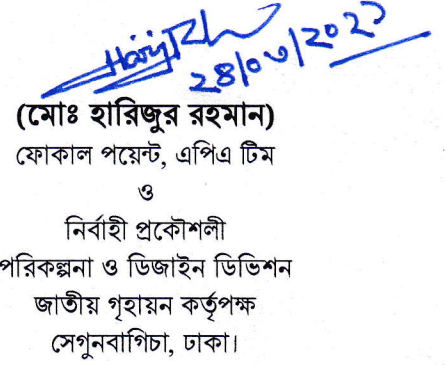 ২৪/০৩/২০২১
(মোঃ হারিজুর রহমান)
ফোকাল পয়েন্ট, এপিএ টিম
ও
নির্বাহী প্রকৌশলী
পরিকল্পনা ও ডিজাইন ডিভিশন
জাতীয় গৃহায়ন কর্তৃপক্ষ
সেগুনবাগিচা, ঢাকা।